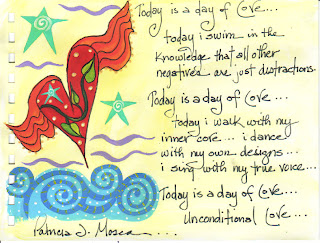 Today is a day of Love...
today i swim in the
knowledge that all other
negatives are just distractions.
Today is a day of Love...
today i walk with my
inner core... i dance
with my own designs...
i sing with my true voice...
Today is a day of Love...
unconditional Love...
Patricia J. Mosca....